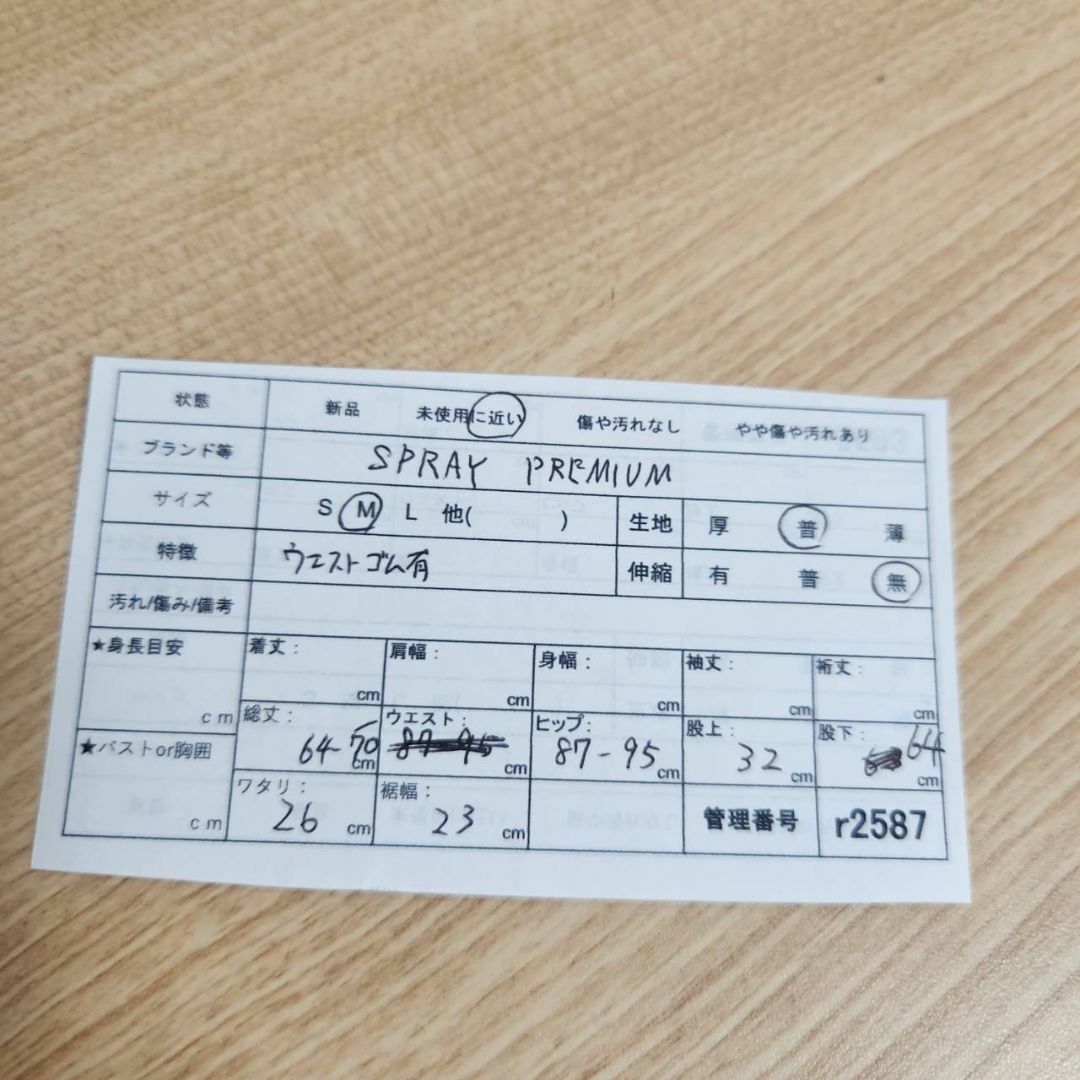 状態 新品 未使用に近い 傷や汚れなし やや傷や汚れあり
ブランド等 SPRAY PREMIUM
サイズ S M L 他( ) 生地 厚 普 薄
特徴 ウエストゴム有 伸縮 有 普 無
汚れ/傷み/備考
★身長目安 cm 着丈: cm 肩幅: cm 身幅: cm 袖丈: cm 裄丈: cm
総丈: 64-70 cm ウエスト: 87-95 cm ヒップ: 87-95 cm 股上: 32 cm 股下: 64 cm
★バストor胸囲 cm ワタリ: 26 cm 裾幅: 23 cm 管理番号 r2587